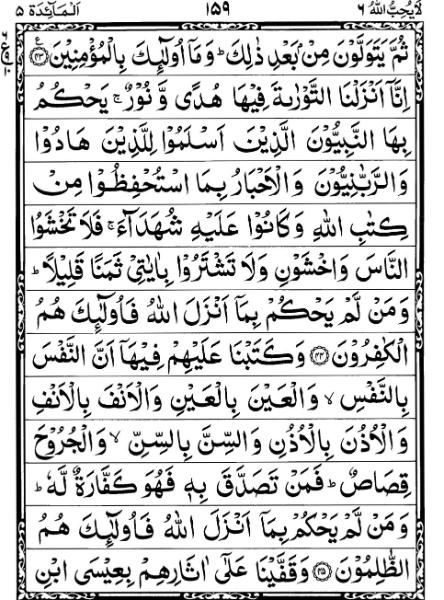 لَا يُحِبُّ اللهُ ٦ ١٥٩ اَلْمَآئِدَة ٥
ثُمَّ يَتَوَلَّوْنَ مِنْۢ بَعْدِ ذٰلِكَ ؕ وَمَاۤ اُولٰٓئِكَ بِالْمُؤْمِنِيْنَ ﴿۴۳﴾
اِنَّاۤ اَنْزَلْنَا التَّوْرٰىةَ فِيْهَا هُدًى وَّ نُوْرٌ ۚ يَحْكُمُ
بِهَا النَّبِيُّوْنَ الَّذِيْنَ اَسْلَمُوْا لِلَّذِيْنَ هَادُوْا
وَالرَّبّٰنِيُّوْنَ وَالْاَحْبَارُ بِمَا اسْتُحْفِظُوْا مِنْ
كِتٰبِ اللهِ وَكَانُوْا عَلَيْهِ شُهَدَآءَ ۚ فَلَا تَخْشَوُا
النَّاسَ وَاخْشَوْنِ وَلَا تَشْتَرُوْا بِاٰيٰتِيْ ثَمَنًا قَلِيْلًا ؕ
وَمَنْ لَّمْ يَحْكُمْ بِمَاۤ اَنْزَلَ اللهُ فَاُولٰٓئِكَ هُمُ
الْكٰفِرُوْنَ ﴿۴۴﴾ وَكَتَبْنَا عَلَيْهِمْ فِيْهَاۤ اَنَّ النَّفْسَ
بِالنَّفْسِ ۙ وَالْعَيْنَ بِالْعَيْنِ وَالْاَنْفَ بِالْاَنْفِ
وَالْاُذُنَ بِالْاُذُنِ وَالسِّنَّ بِالسِّنِّ ۙ وَالْجُرُوْحَ
قِصَاصٌ ؕ فَمَنْ تَصَدَّقَ بِهٖ فَهُوَ كَفَّارَةٌ لَّهٗ ؕ
وَمَنْ لَّمْ يَحْكُمْ بِمَاۤ اَنْزَلَ اللهُ فَاُولٰٓئِكَ هُمُ
الظّٰلِمُوْنَ ﴿۴۵﴾ وَقَفَّيْنَا عَلٰۤى اٰثَارِهِمْ بِعِيْسَى ابْنِ